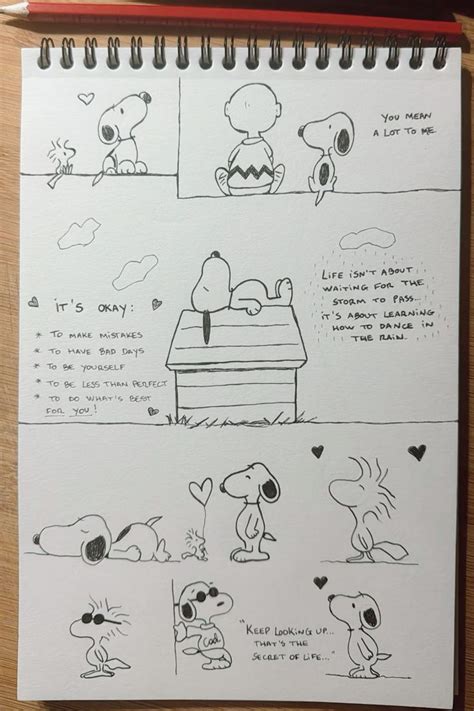 YOU MEAN
A LOT TO ME
IT'S OKAY:
* TO MAKE MISTAKES
* TO HAVE BAD DAYS
* TO BE YOURSELF
* TO BE LESS THAN PERFECT
* TO DO WHAT'S BEST
FOR YOU!
LIFE ISN'T ABOUT
WAITING FOR THE
STORM TO PASS...
IT'S ABOUT LEARNING
HOW TO DANCE IN
THE RAIN.
Cool
"KEEP LOOKING UP...
THAT'S THE
SECRET OF LIFE..."